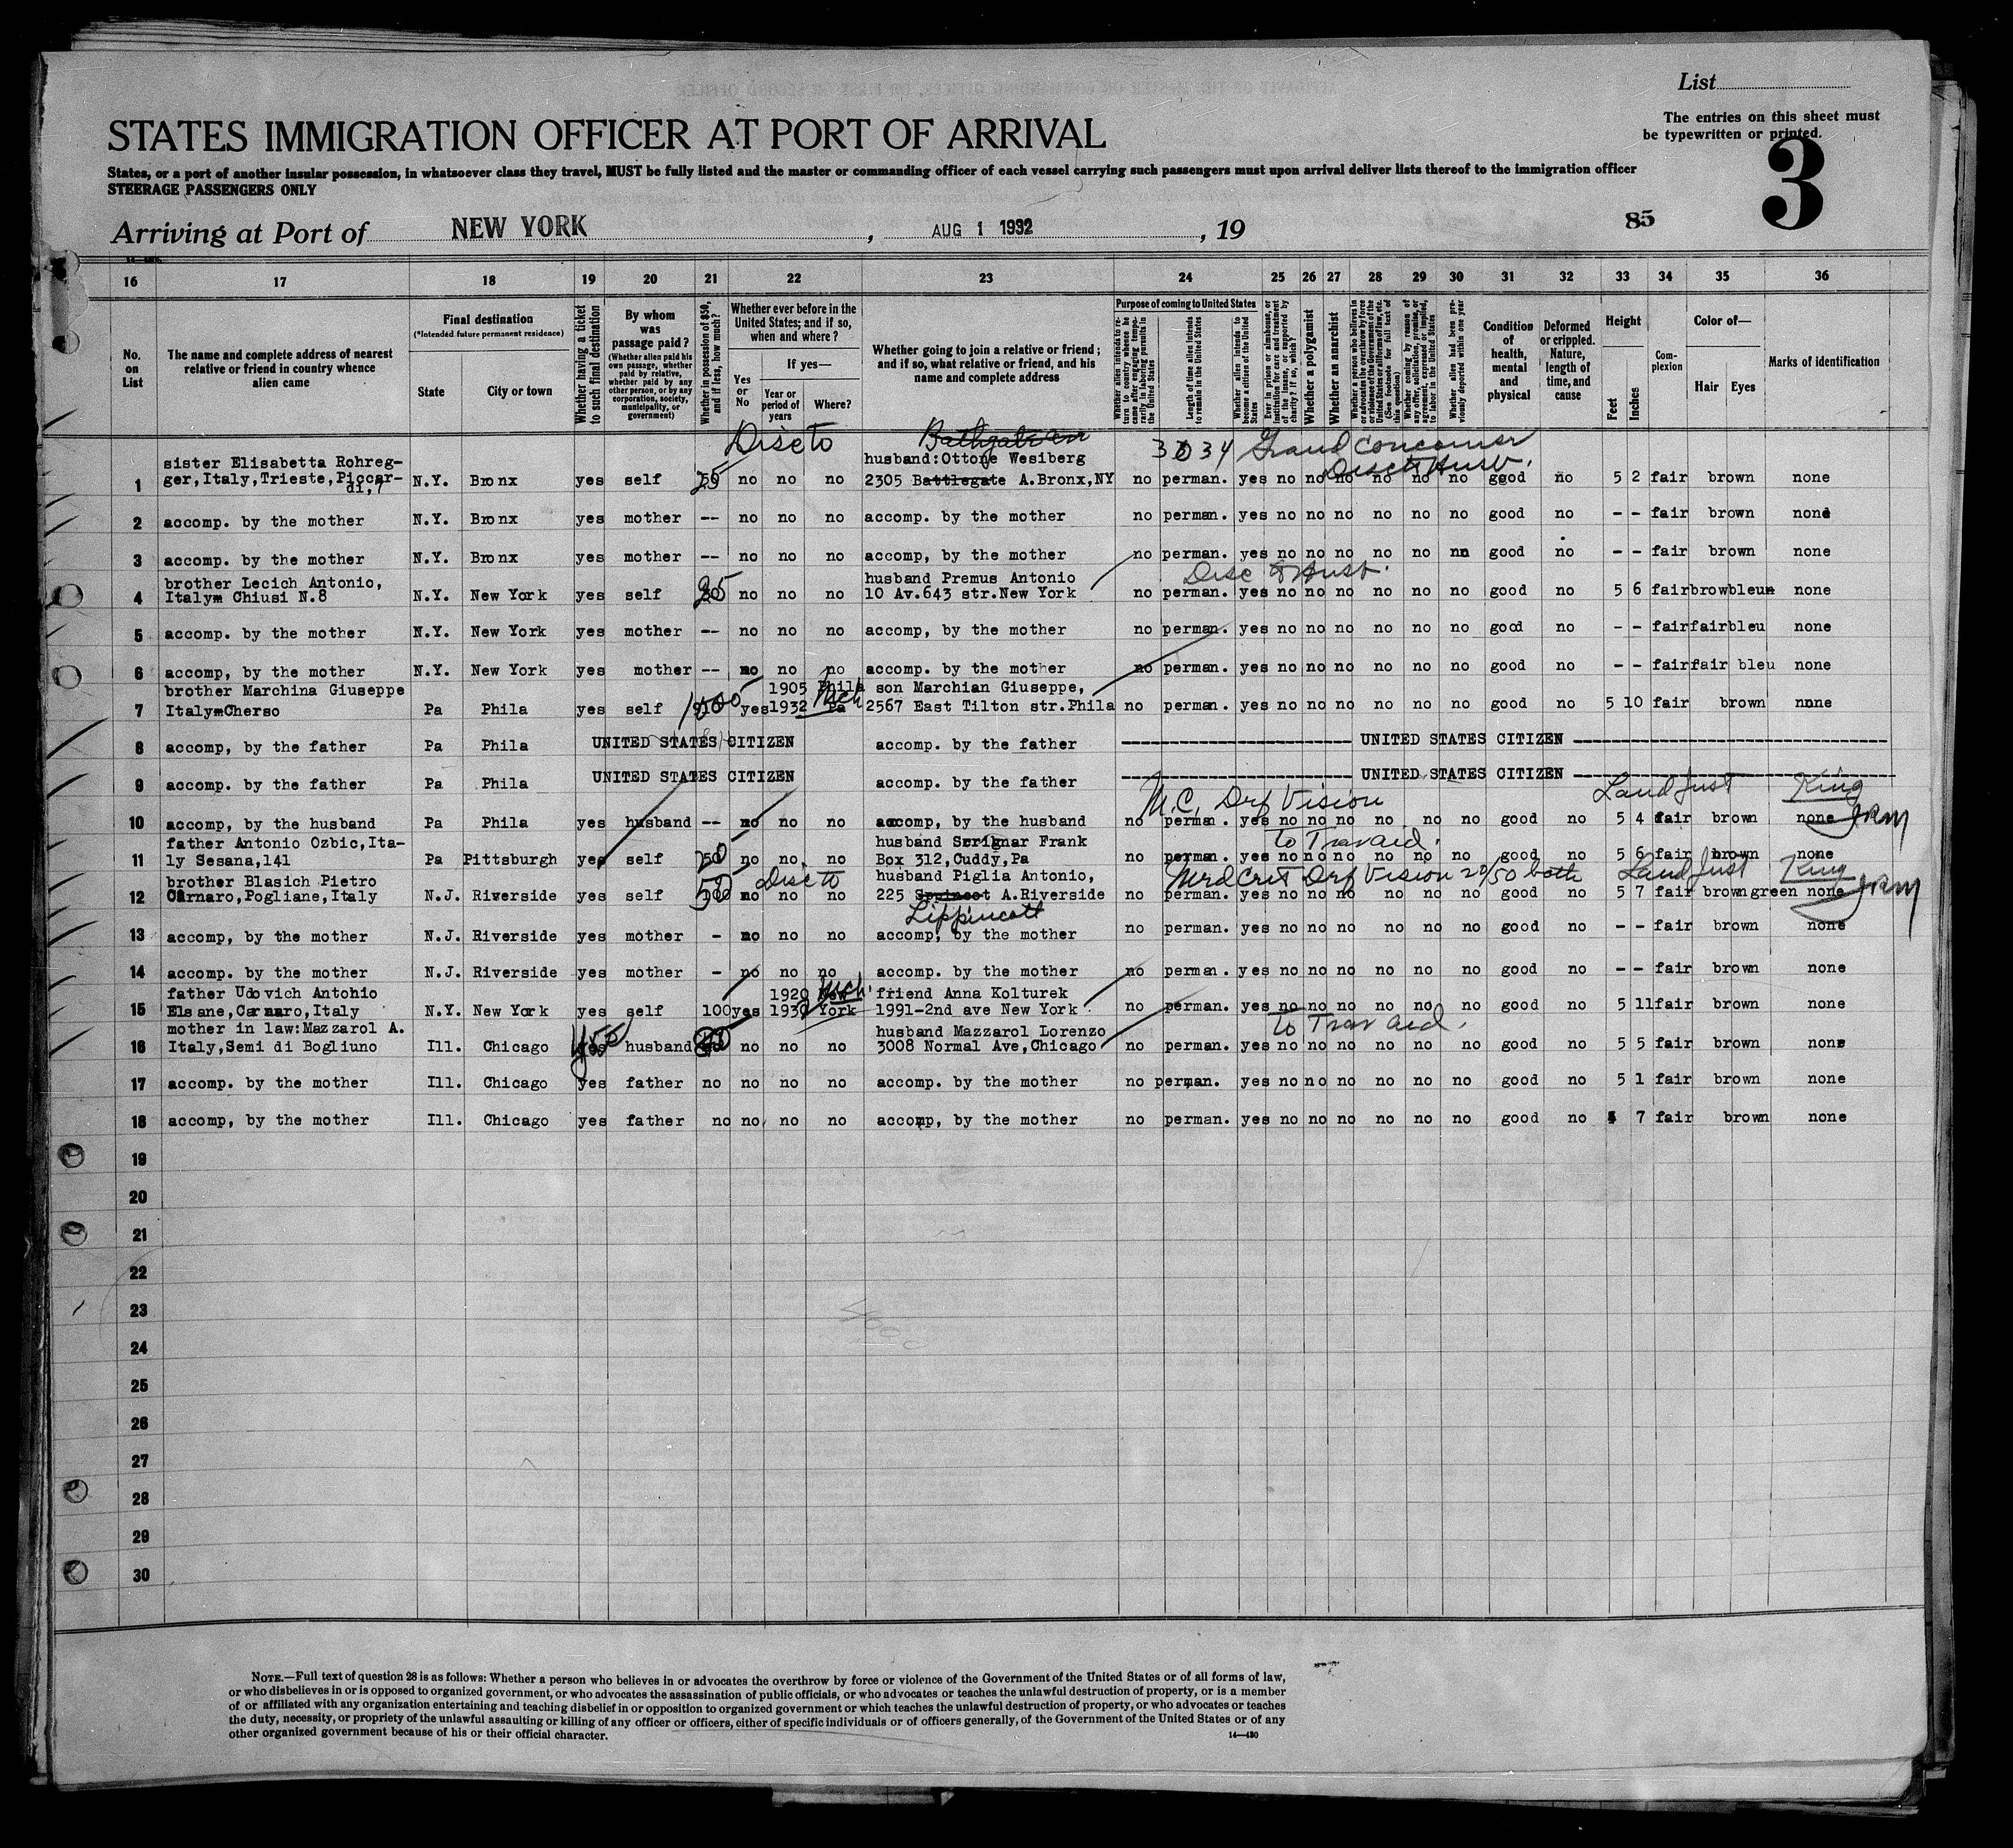 List
The entries on this sheet must
be typewritten or printed.
3
STATES IMMIGRATION OFFICER AT PORT OF ARRIVAL
States, or a port of another insular possession, in whatsoever class they travel, MUST be fully listed and the master or commanding officer of each vessel carrying such passengers must upon arrival deliver lists thereof to the immigration officer
STEERAGE PASSENGERS ONLY
Arriving at Port of NEW YORK, AUG 1 1932, 19
85
16 17 18 19 20 21 22 23 24 25 26 27 28 29 30 31 32 33 34 35 36
No. on List
The name and complete address of nearest relative or friend in country whence alien came
Final destination
(*Intended future permanent residence)
State
City or town
Whether having a ticket to such final destination
By whom was passage paid?
(Whether alien paid his own passage, whether paid by relative, whether paid by any other person, or by any corporation, society, municipality, or government)
Whether in possession of $50, and if less, how much?
Whether ever before in the United States; and if so, when and where?
Yes or No
If yes—
Year or period of years
Where?
Whether going to join a relative or friend; and if so, what relative or friend, and his name and complete address
Purpose of coming to United States
Whether alien intends to return to country whence he came after engaging temporarily in laboring pursuits in the United States
Length of time alien intends to remain in the United States
Whether alien intends to become a citizen of the United States
Ever in prison or almshouse, or institution for care and treatment of the insane, or supported by charity? If so, which?
Whether a polygamist
Whether an anarchist
Whether coming by reason of any offer, solicitation, promise, or agreement, expressed or implied, to labor in the United States
Whether alien had been previously deported within one year
Condition of health, mental and physical
Deformed or crippled. Nature, length of time, and cause
Height
Feet
Inches
Complexion
Color of—
Hair Eyes
Marks of identification
Disc to
Bathgate
3034 Grand Concourse
Disc to Husb.
sister Elisabetta Rohreg- husband:Ottone Wesiberg
1 ger,Italy,Trieste,Piccar- N.Y. Bronx yes self 25 no no no 2305 Battlegate A.Bronx,NY no perman. yes no no no no no no good no 5 2 fair brown none
di,7
2 accomp. by the mother N.Y. Bronx yes mother -- no no no accomp. by the mother no perman. yes no no no no no no good no - - fair brown none
3 accomp. by the mother N.Y. Bronx yes mother -- no no no accomp, by the mother no perman. yes no no no no no nn good no - - fair brown none
Disc to Husb.
brother Lecich Antonio, husband Premus Antonio
4 Italym Chiusi N.8 N.Y. New York yes self 25 no no no 10 Av.643 str.New York no perman. yes no no no no no no good no 5 6 fair brow bleun none
5 accomp. by the mother N.Y. New York yes mother -- no no no accomp, by the mother no perman. yes no no no no no no good no - - fair fair bleu none
6 accomp, by the mother N.Y. New York yes mother -- no no no accomp. by the mother no perman. yes no no no no no no good no - - fair fair bleu none
brother Marchina Giuseppe 1905 Phila son Marchian Giuseppe,
7 Italy-Cherso Pa Phila yes self yes 1932 Pa 2567 East Tilton str.Phila no perman. yes no no no no no no good no 5 10 fair brown nnne
8 accomp, by the father Pa Phila UNITED STATES CITIZEN accomp. by the father UNITED STATES CITIZEN
9 accomp. by the father Pa Phila UNITED STATES CITIZEN accomp. by the father UNITED STATES CITIZEN
M.C. Drf Vision Land Just King
10 accomp, by the husband Pa Phila yes husband -- no no no accomp, by the husband no perman. yes no no no no no no good no 5 4 fair brown none
to Trav aid.
father Antonio Ozbic,Ita- husband Scrignar Frank
11 ly Sesana,141 Pa Pittsburgh yes self 50 no no no Box 312,Cuddy,Pa no perman. yes no no no no no no good no 5 6 fair brown none
Disc to Med Crit Drf Vision 20/50 both Land Just King
brother Blasich Pietro husband Piglia Antonio,
12 Carnaro,Pogliane,Italy N.J. Riverside yes self 50 no no no 225 A.Riverside no perman. yes no no no no no no good no 5 7 fair brown green none
Lippincott
13 accomp, by the mother N.J. Riverside yes mother - no no no accomp, by the mother no perman. yes no no no no no no good no - - fair brown none
14 accomp. by the mother N.J. Riverside yes mother - no no no accomp. by the mother no perman. yes no no no no no no good no - - fair brown none
father Udovich Antohio 1920 New friend Anna Kolturek
15 Elsane,Carnaro,Italy N.Y. New York yes self 100 yes 1930 York 1991-2nd ave New York no perman. yes no no no no no no good no 5 11 fair brown none
to Trav aid.
mother in law:Mazzarol A. husband Mazzarol Lorenzo
16 Italy,Semi di Bogliuno Ill. Chicago yes husband no no no 3008 Normal Ave,Chicago no perman. yes no no no no no no good no 5 5 fair brown none
17 accomp. by the mother Ill. Chicago yes father no no no no accomp. by the mother no perman. yes no no no no no no good no 5 1 fair brown none
18 accomp, by the mother Ill. Chicago yes father no no no no accomp, by the mother no perman. yes no no no no no no good no 7 fair brown none
19
20
21
22
23
24
25
26
27
28
29
30
NOTE.—Full text of question 28 is as follows: Whether a person who believes in or advocates the overthrow by force or violence of the Government of the United States or of all forms of law,
or who disbelieves in or is opposed to organized government, or who advocates the assassination of public officials, or who advocates or teaches the unlawful destruction of property, or is a member
of or affiliated with any organization entertaining and teaching disbelief in or opposition to organized government or which teaches the unlawful destruction of property, or who advocates or teaches
the duty, necessity, or propriety of the unlawful assaulting or killing of any officer or officers, either of specific individuals or of officers generally, of the Government of the United States or of any
other organized government because of his or their official character.
14—430